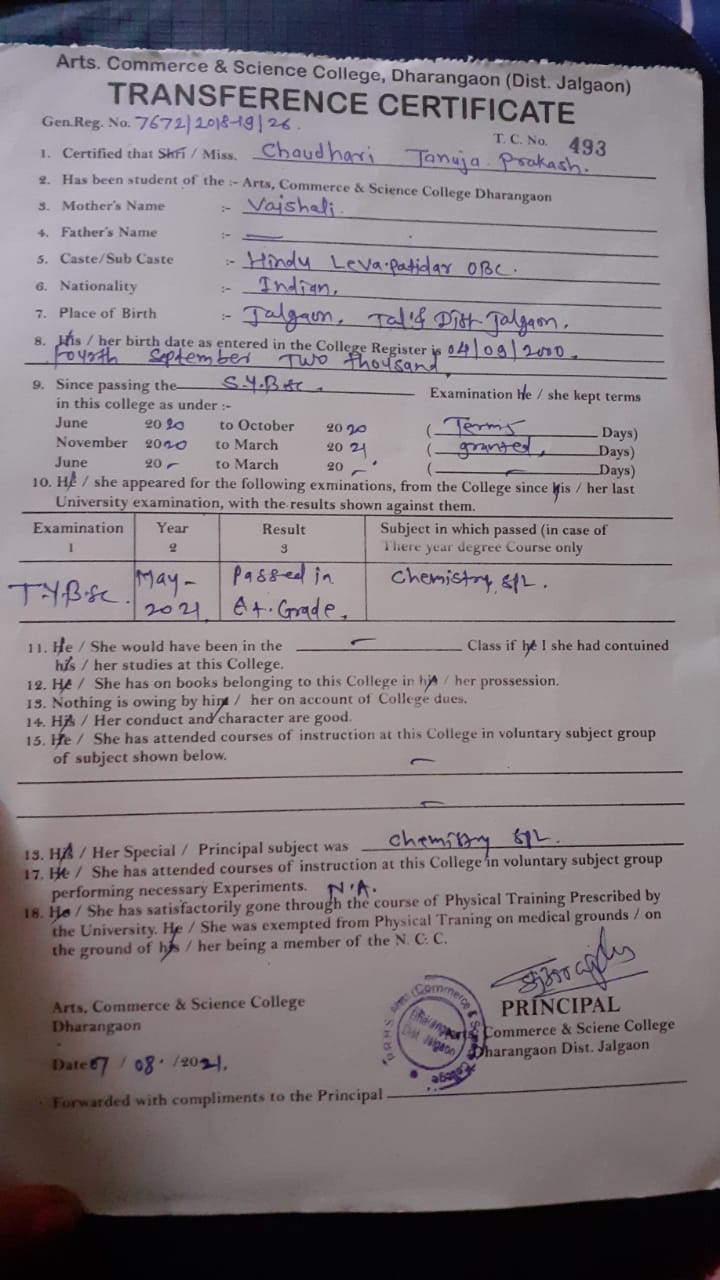 Arts. Commerce & Science College, Dharangaon (Dist. Jalgaon)
TRANSFERENCE CERTIFICATE
Gen.Reg. No. 7672/2018-19/26.
T. C. No. 493
1. Certified that Shri / Miss. Chaudhari Tanuja Prakash.
2. Has been student of the :- Arts, Commerce & Science College Dharangaon
3. Mother's Name :- Vaishali.
4. Father's Name :- —
5. Caste/Sub Caste :- Hindu Leva-patidar OBC.
6. Nationality :- Indian,
7. Place of Birth :- Jalgaon, Tal & Dist Jalgaon.
8. His / her birth date as entered in the College Register is 04/09/2000.
Fourth September Two Thousand.
9. Since passing the S.Y.B.sc. Examination He / she kept terms
in this college as under :-
June 2020 to October 2020 ( Terms Days)
November 2020 to March 2021 ( granted, Days)
June 20 - to March 20 - ( — Days)
10. He / she appeared for the following exminations, from the College since his / her last
University examination, with the results shown against them.
Examination Year Result Subject in which passed (in case of
1 2 3 There year degree Course only
T.Y.B.sc. May- Passed in Chemistry spl.
2021 A+. Grade.
11. He / She would have been in the — Class if he I she had contuined
his / her studies at this College.
12. He / She has on books belonging to this College in his / her prossession.
13. Nothing is owing by him / her on account of College dues.
14. His / Her conduct and character are good.
15. He / She has attended courses of instruction at this College in voluntary subject group
of subject shown below. —
—
13. His / Her Special / Principal subject was Chemistry spl.
17. He / She has attended courses of instruction at this College in voluntary subject group
performing necessary Experiments. N.A.
18. He / She has satisfactorily gone through the course of Physical Training Prescribed by
the University. He / She was exempted from Physical Traning on medical grounds / on
the ground of his / her being a member of the N. C. C.
Arts, Commerce & Science College
Dharangaon
Date 07 / 08 . /2021.
PRINCIPAL
Arts, Commerce & Sciene College
Dharangaon Dist. Jalgaon
Forwarded with compliments to the Principal